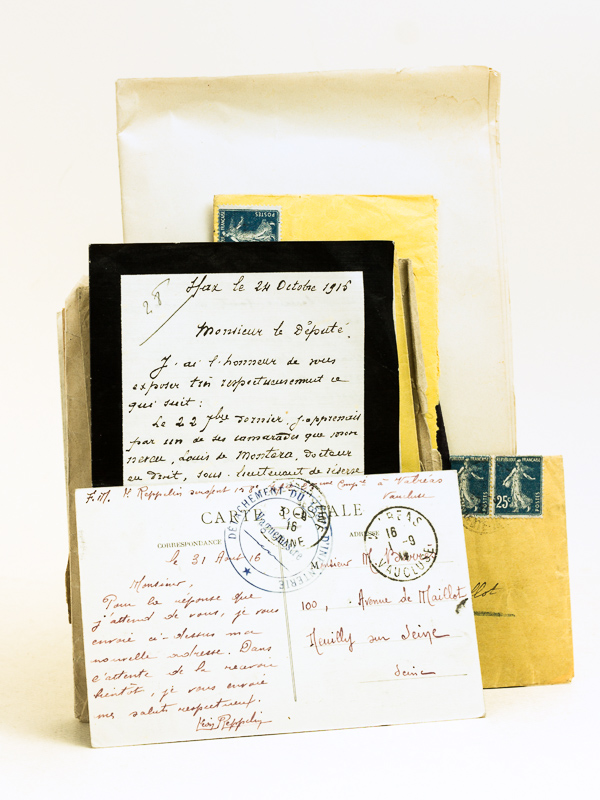 POSTES
28
Dax le 24 Octobre 1915
Monsieur le Député.
J'ai l'honneur de vous
exposer très respectueusement ce
qui suit :
Le 22 7bre dernier j'apprenais
par un de ses camarades que mon
neveu, Louis de Montera, Docteur
en Droit, sous-lieutenant de réserve
F.M. Reppelin sergent à Valréas
Vaucluse
CARTE POSTALE
CORRESPONDANCE
ADRESSE
DÉTACHEMENT DU D'INFANTERIE
Vaguemestre
16
VAUCLUSE
RÉAS
16
1-9
VAUCLUSE
RÉPUBLIQUE FRANÇAISE
25c
POSTES
le 31 Août 16
Monsieur,
Pour la réponse que
j'attend de vous, je vous
envoie ci-dessus ma
nouvelle adresse. Dans
l'attente de la recevoir
bientôt, je vous envoie
mes saluts respectueux.
Reppelin
Monsieur M.
100, Avenue de Maillot
Neuilly sur Seine
Seine